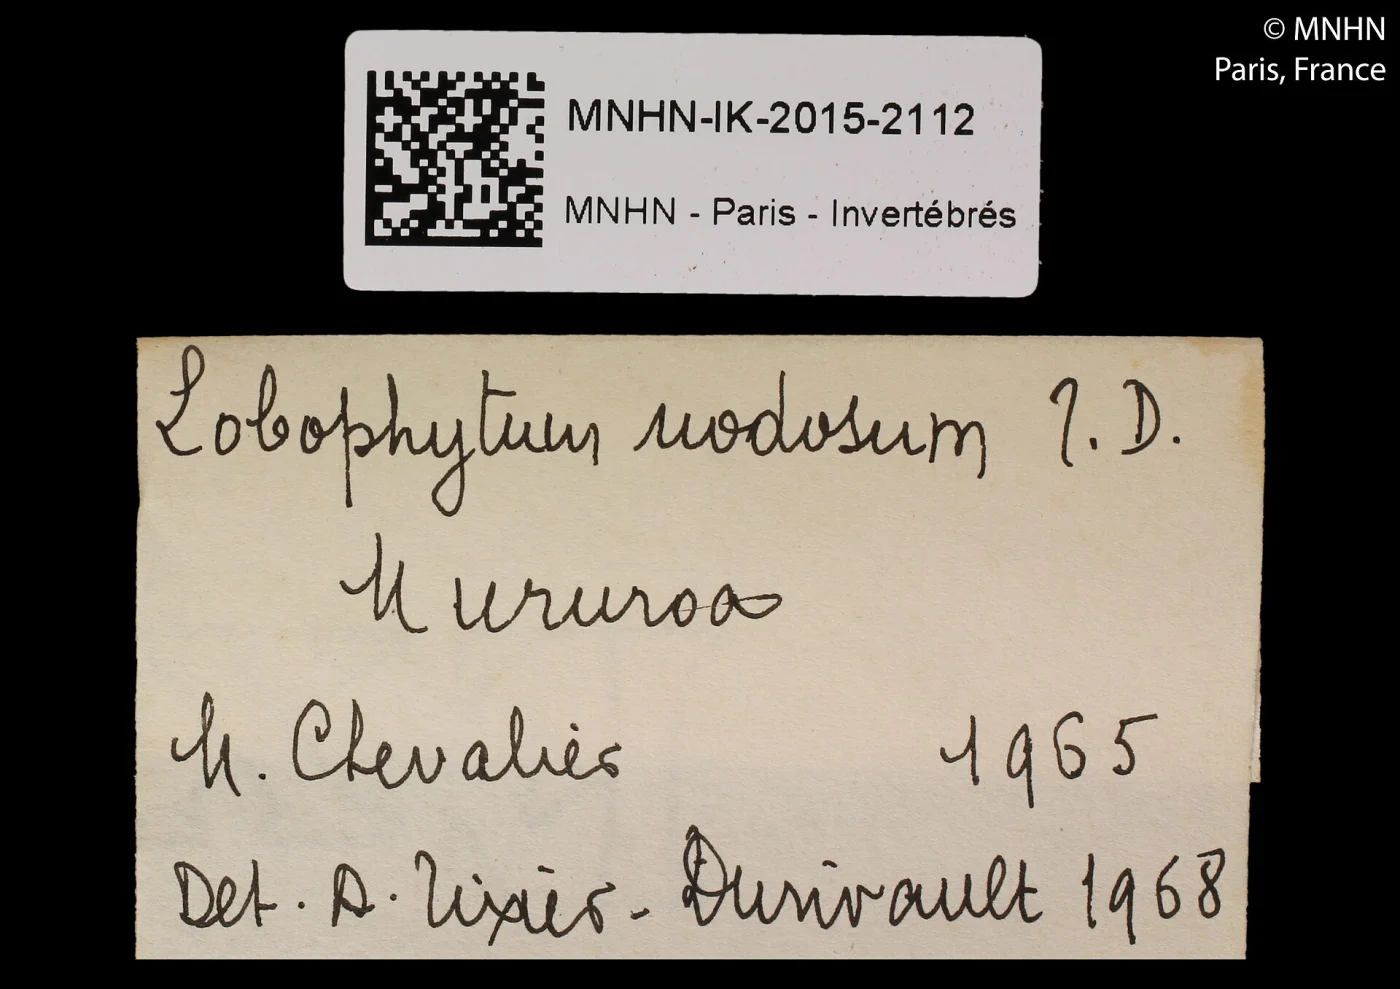 © MNHN
Paris, France
MNHN-IK-2015-2112
MNHN - Paris - Invertébrés
Lobophytum nodosum T. D.
Mururoa
M. Chevalier 1965
Det. A. Tixier-Durivault 1968